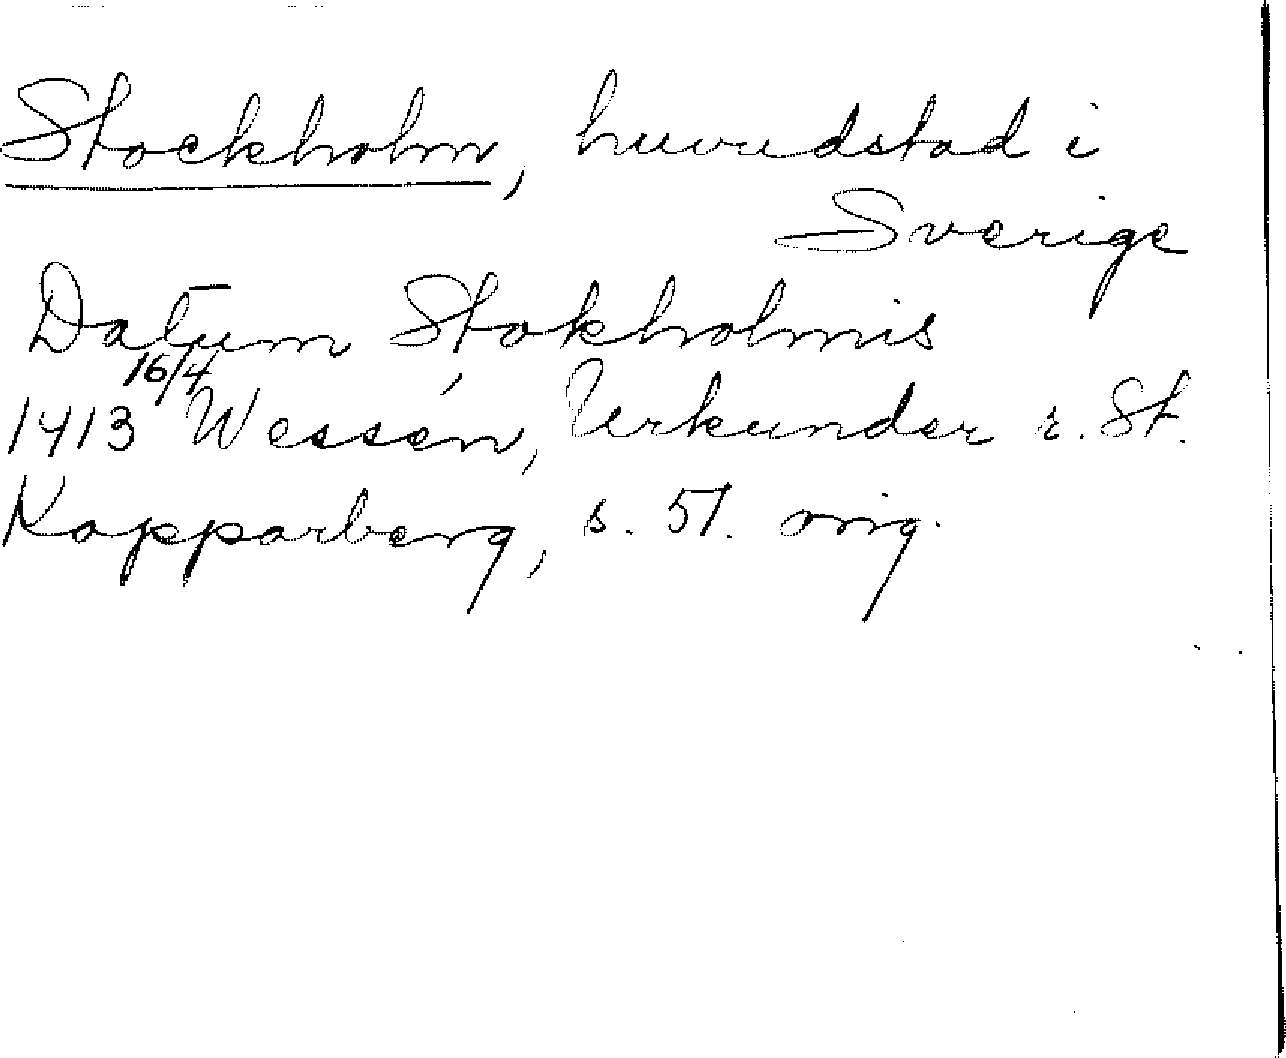 Stockholm, huvudstad i
Sverige
Datum Stokholmis
16/4
1413 Wessén, Urkunder r. St.
Kopparberg, s. 51. orig.